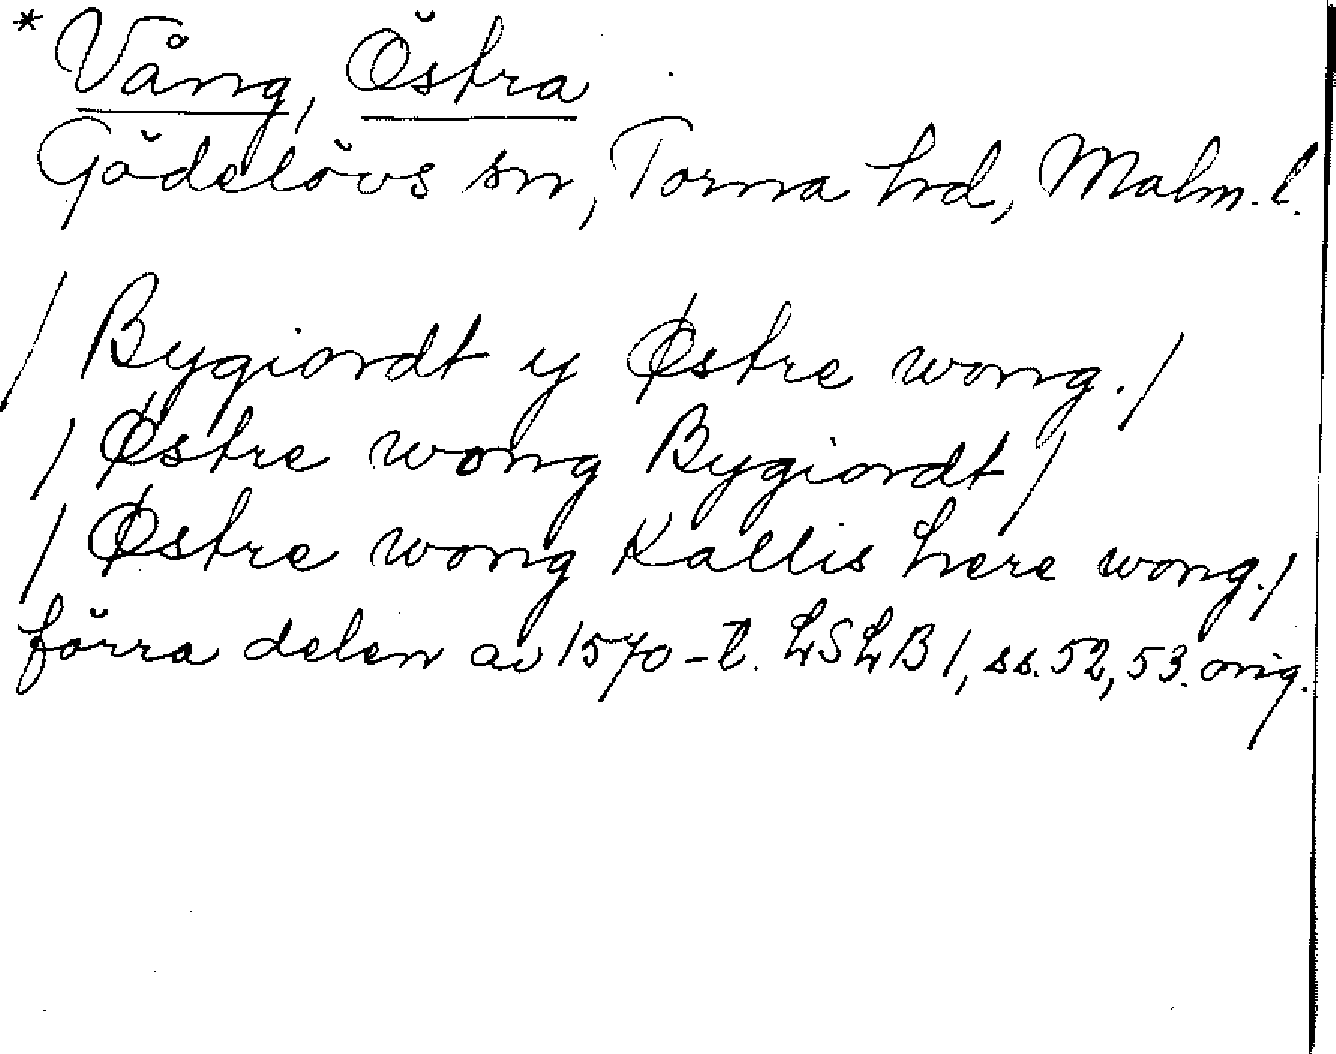 * Vång, Östra
Gödelövs sn, Torna hd, Malm. l.
/ Bygiordt y Østre wong. /
/ Østre wong Bygiordt /
/ Østre wong Kallis here wong. /
förra delen av 1570-t. LSLB 1, ss. 52, 53. orig.